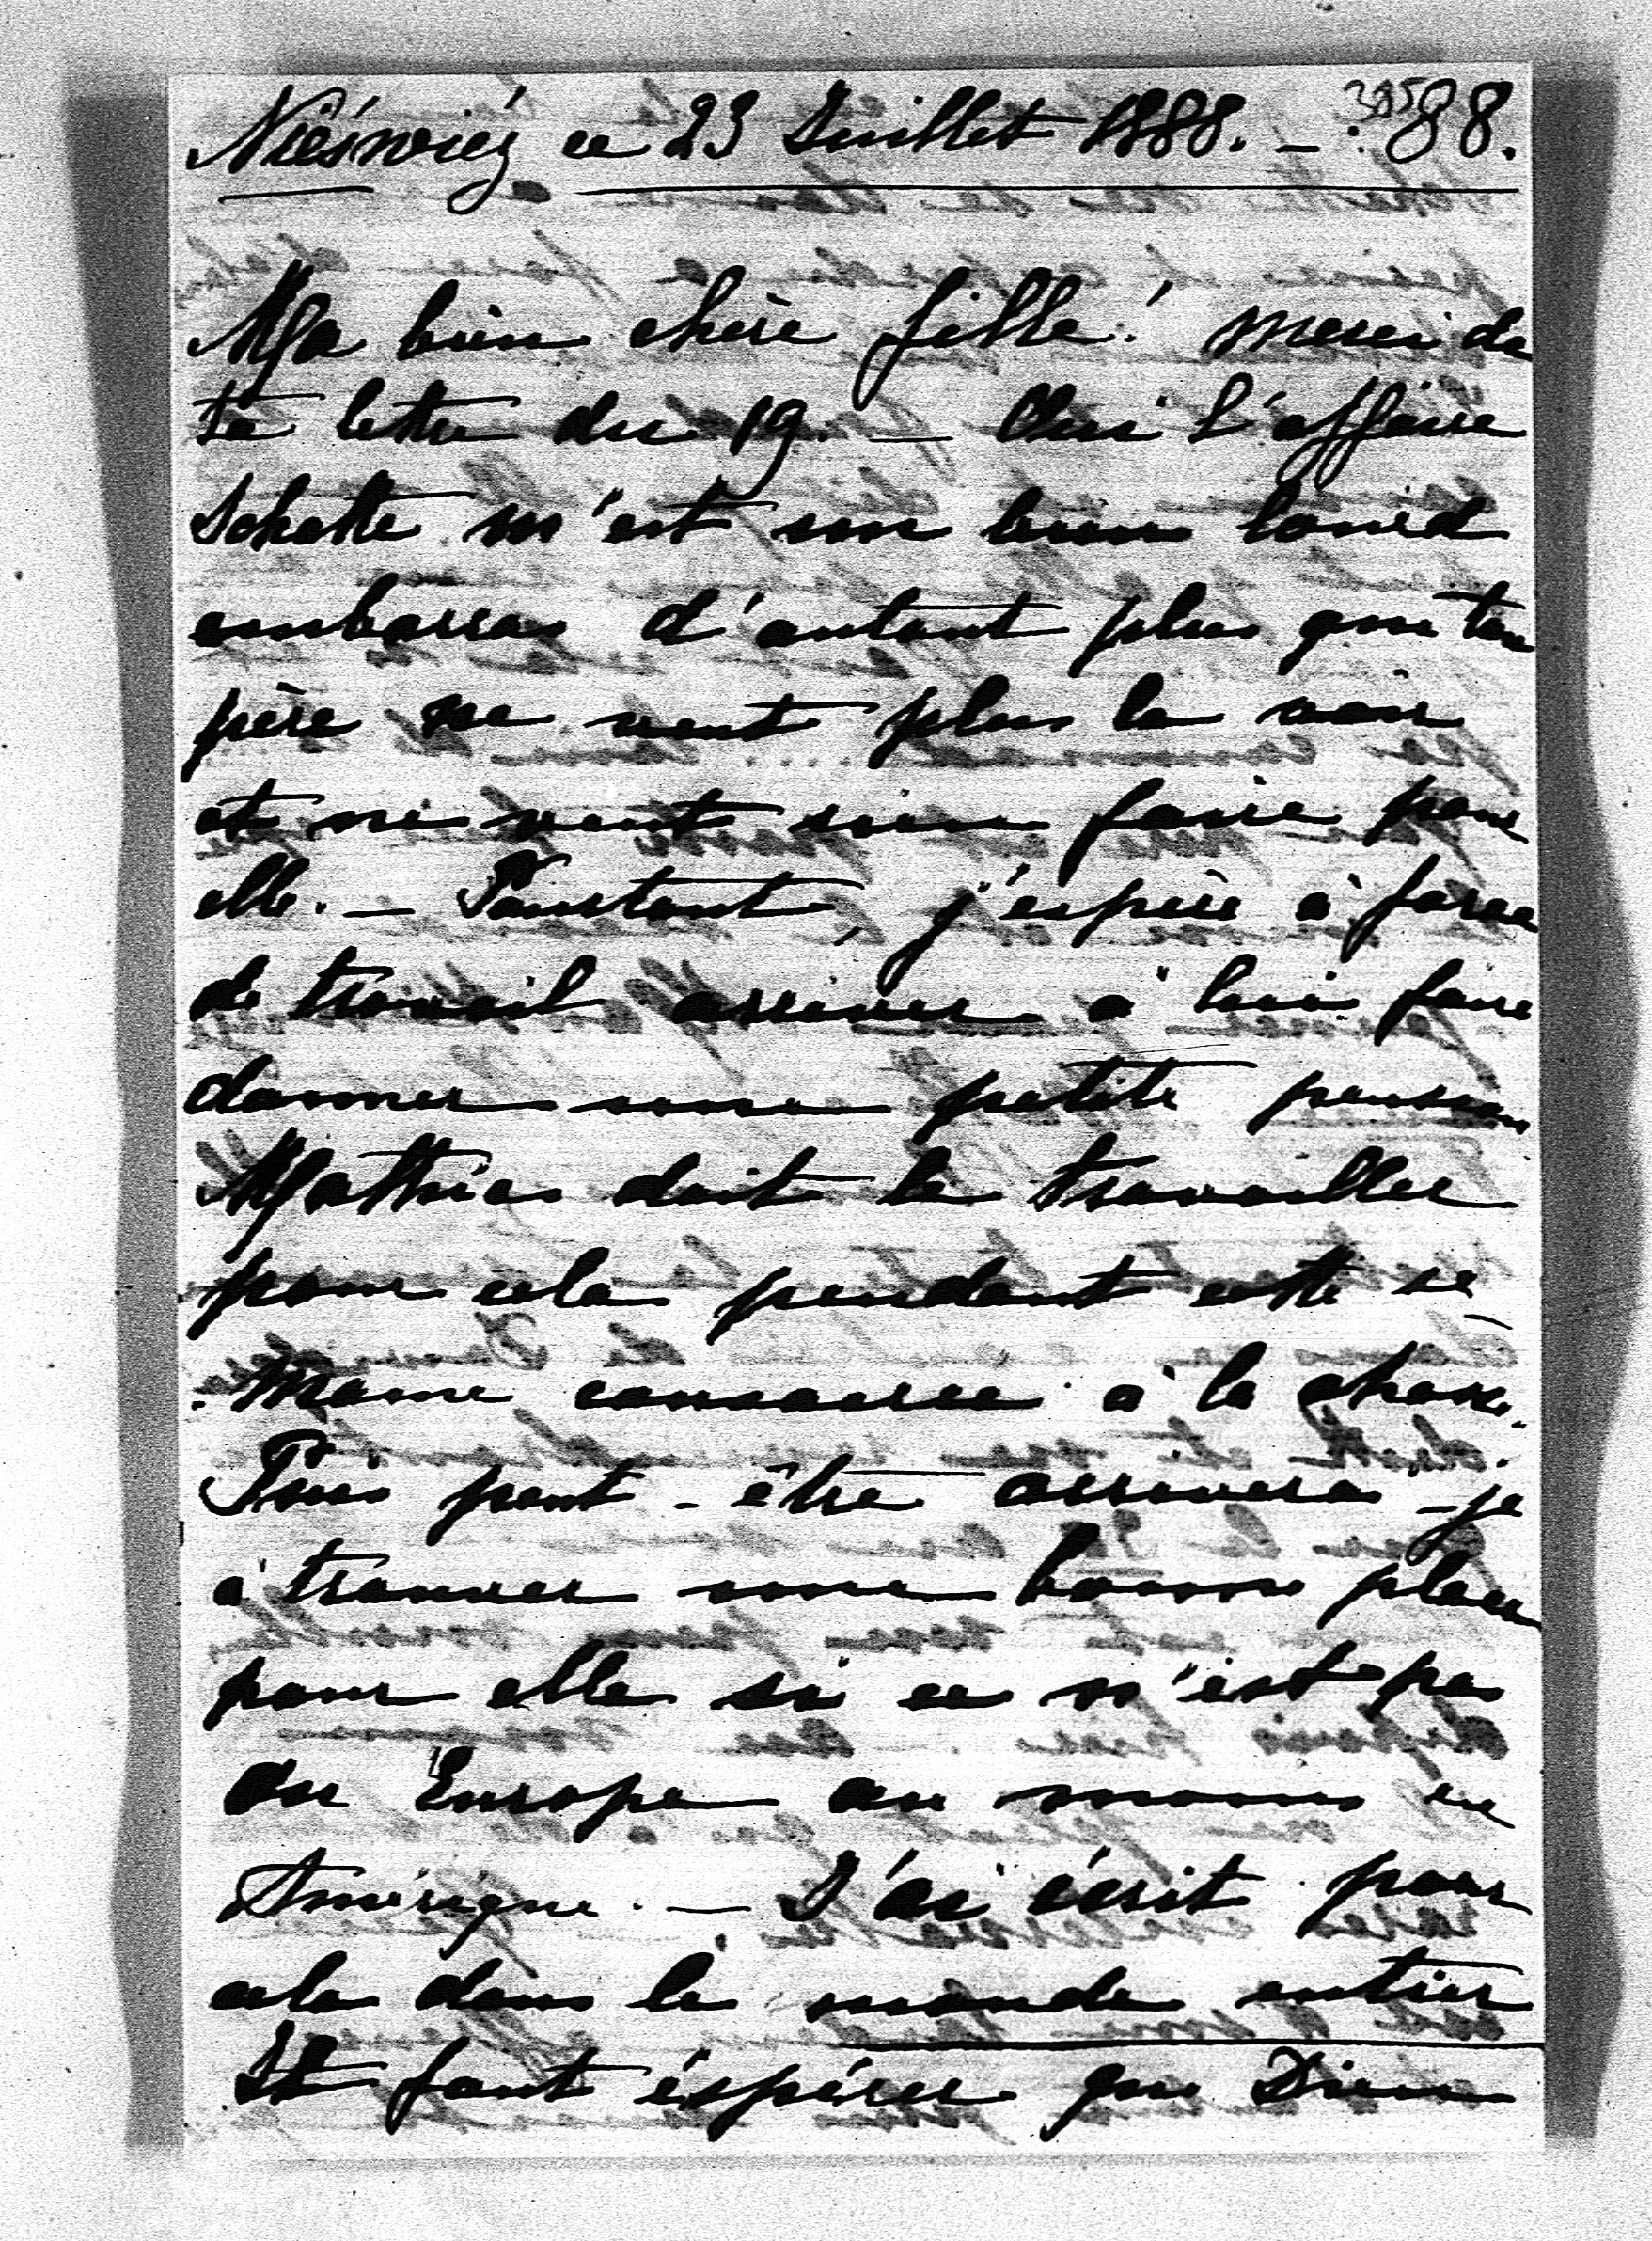 Niéswiéz ce 23 Juillet 1888. — 88.
385
Ma bien chère fille! Merci de
ta lettre du 19. — Oui l'affaire
Schette m'est un bien lourd
embarras d'autant plus que ton
père ne veut plus la voir
et ne veut rien faire pour
elle. — Pourtant, j'espère à force
de travail arriver à lui faire
donner une petite pension
Mathias doit le travailler
pour cela pendant cette se-
maine consacrée à la chasse.
Puis peut-être arriverai-je
à trouver une bonne place
pour elle si ce n'est pas
en Europe au moins en
Amérique. — J'ai écrit pour
cela dans le monde entier
Il faut éspérer que Dieu